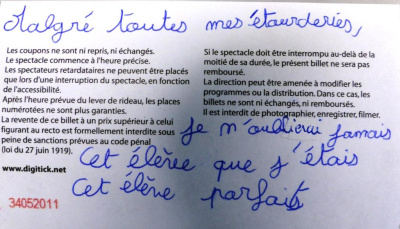 Malgré toutes mes étourderies,
Les coupons ne sont ni repris, ni échangés.
Le spectacle commence à l'heure précise.
Les spectateurs retardataires ne peuvent être placés
que lors d'une interruption du spectacle, en fonction
de l'accessibilité.
Après l'heure prévue du lever de rideau, les places
numérotées ne sont plus garanties.
La revente de ce billet à un prix supérieur à celui
figurant au recto est formellement interdite sous
peine de sanctions prévues au code pénal
(loi du 27 juin 1919).
www.digitick.net
34052011
Si le spectacle doit être interrompu au-delà de la
moitié de sa durée, le présent billet ne sera pas
remboursé.
La direction peut être amenée à modifier les
programmes ou la distribution. Dans ce cas, les
billets ne sont ni échangés, ni remboursés.
Il est interdit de photographier, enregistrer, filmer.
Je n'oublierai jamais
Cet élève que j'étais
Cet élève parfait